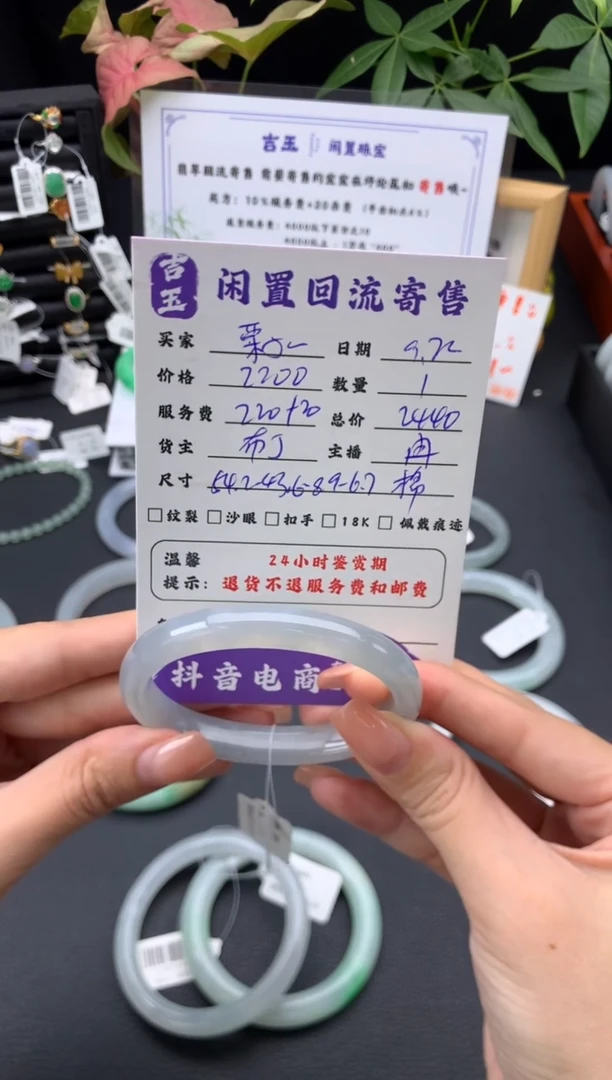 吉玉 闲置珠宝
翡翠回流寄售 需要寄售的宝宝
寄售哦~
10%服务费+20杂费
吉玉 闲置回流寄售
买家 日期 9.22
价格 2200 数量 1
服务费 220+20 总价 2440
货主 布丁 主播 冉
尺寸 54.2-43.6-8.9-6.7 棉
□纹裂 □沙眼 □扣手 □18K □佩戴痕迹
温馨 24小时鉴赏期
提示: 退货不退服务费和邮费
抖音电商